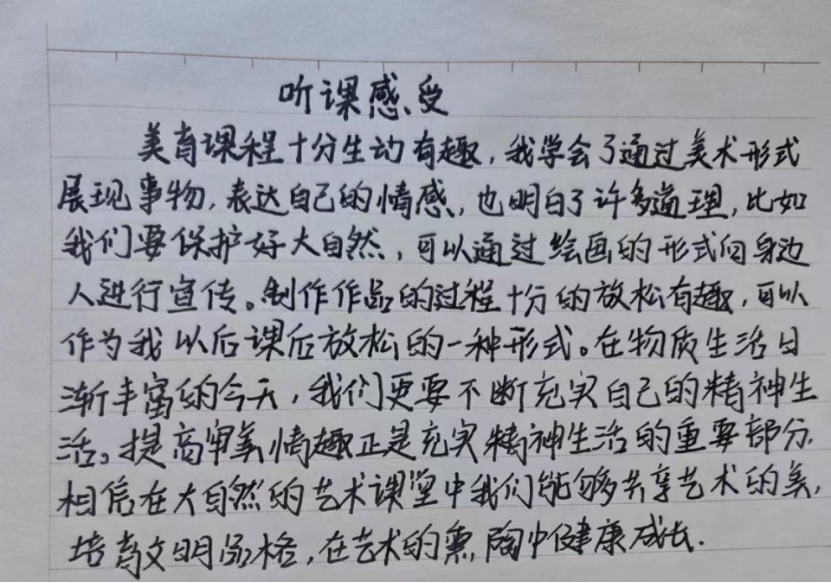 听课感受
美育课程十分生动有趣，我学会了通过美术形式
展现事物，表达自己的情感，也明白了许多道理，比如
我们要保护好大自然，可以通过绘画的形式向身边
人进行宣传。制作作品的过程十分的放松有趣，可以
作为我以后课后放松的一种形式。在物质生活日
渐丰富的今天，我们更要不断充实自己的精神生
活。提高审美情趣正是充实精神生活的重要部分，
相信在大自然的艺术课堂中我们能够共享艺术的美，
培育文明品格，在艺术的熏陶中健康成长.